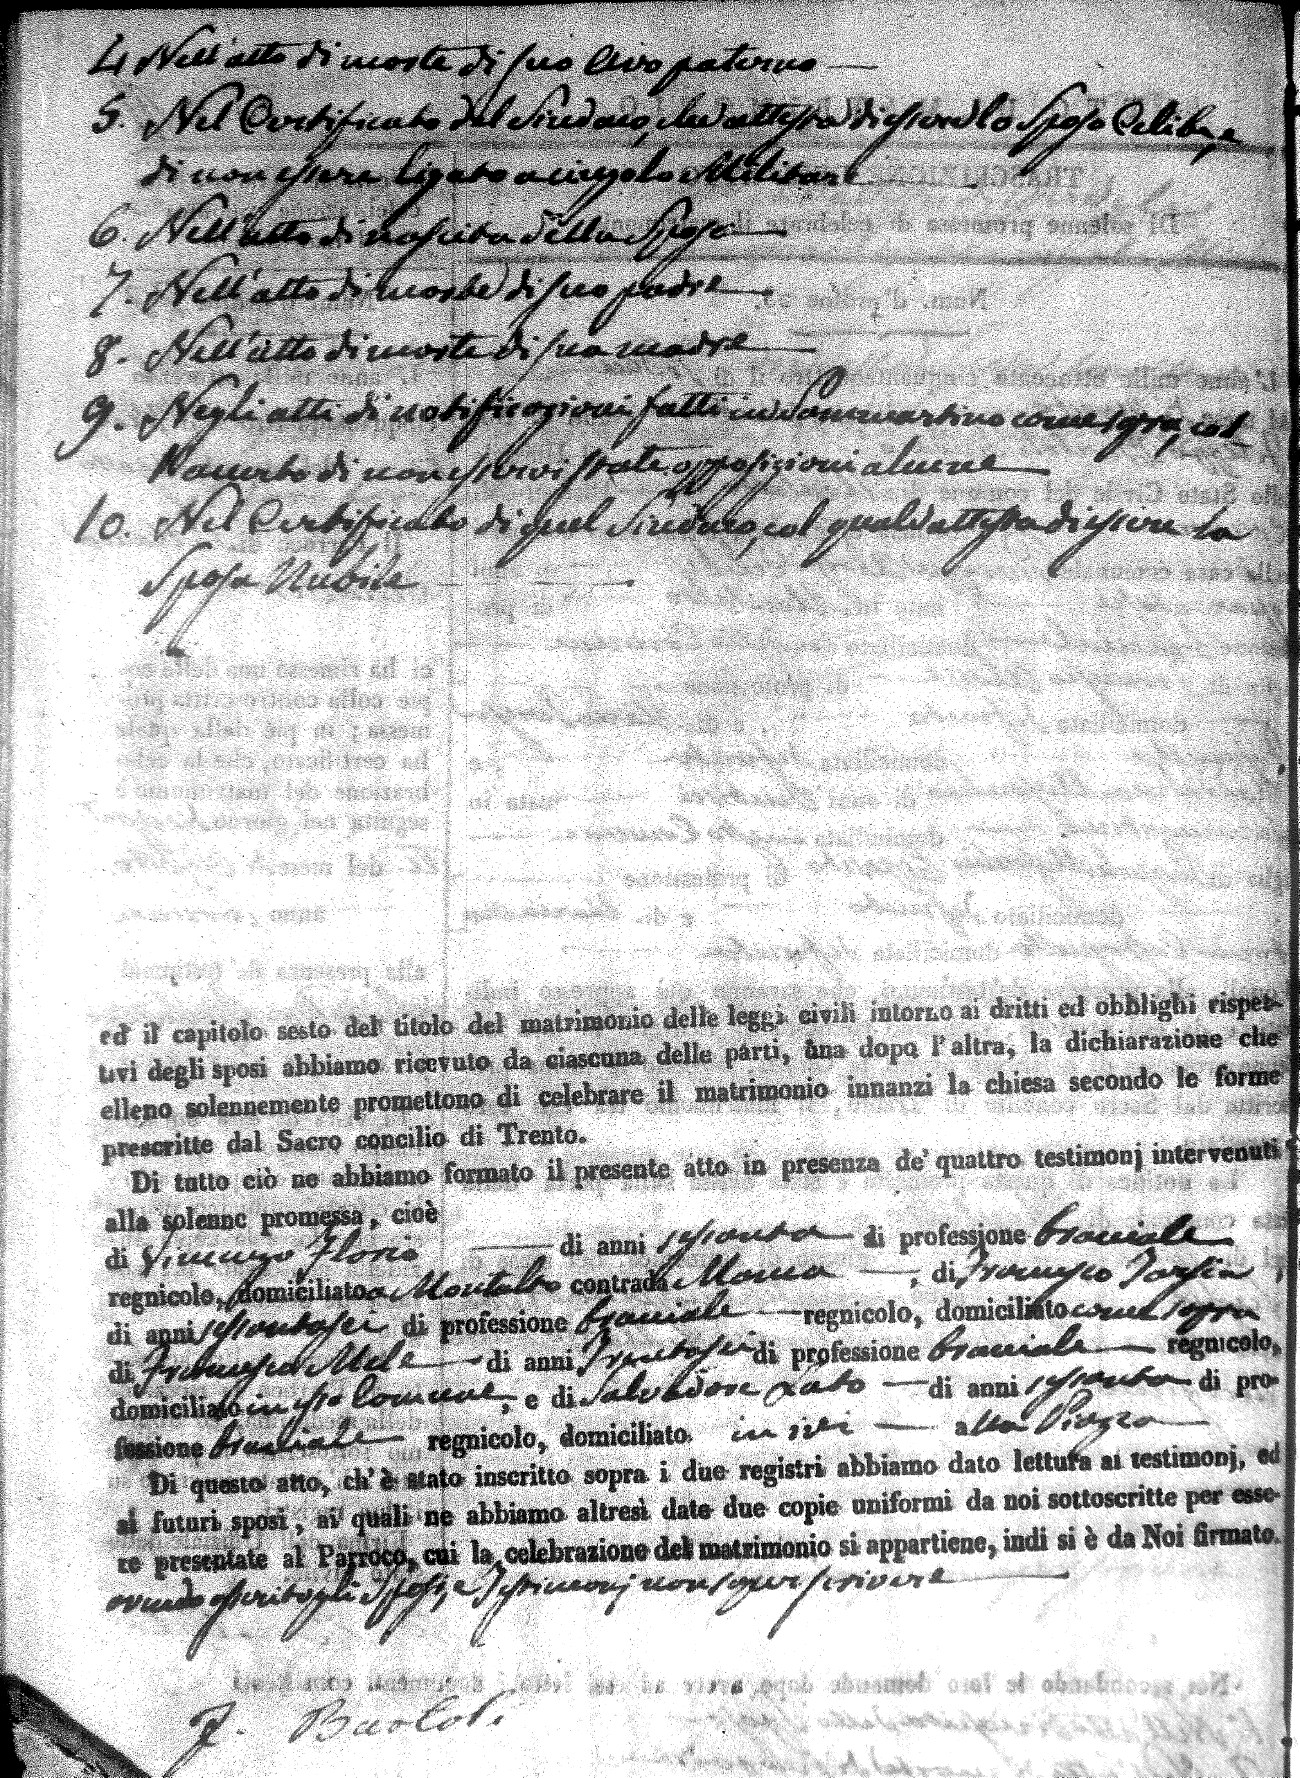 4. Nell'atto di morte di suo Avo paterno
5. Nel Certificato del Sindaco, che attesta di essere lo Sposo Celibe, e
di non essere ligato a vincolo Militare
6. Nell'atto di nascita della Sposa
7. Nell'atto di morte di suo padre
8. Nell'atto di morte di sua madre
9. Negli atti di notificazioni fatti in Sammartino come sopra, col
di non esservi state opposizioni alcune
10. Nel Certificato di quel Sindaco, col quale attesta di essere la
Sposa Nubile
ed il capitolo sesto del titolo del matrimonio delle leggi civili intorno ai dritti ed obblighi rispet-
tivi degli sposi abbiamo ricevuto da ciascuna delle parti, una dopo l'altra, la dichiarazione che
elleno solennemente promettono di celebrare il matrimonio innanzi la chiesa secondo le forme
prescritte dal Sacro concilio di Trento.
Di tutto ciò ne abbiamo formato il presente atto in presenza de' quattro testimonj intervenuti
alla solenne promessa, cioè
di Vincenzo Florio di anni sessanta di professione bracciale
regnicolo, domiciliato a Montalto contrada , di Francesco Tarsia,
di anni sessantasei di professione bracciale regnicolo, domiciliato come sopra
di Francesco Mele di anni Trentasei di professione bracciale regnicolo,
domiciliato in esso Comune, e di Salvadore Lato di anni sessanta di pro-
fessione bracciale regnicolo, domiciliato in ivi alla Piazza
Di questo atto, ch'è stato inscritto sopra i due registri abbiamo dato lettura ai testimonj, ed
ai futuri sposi, ai quali ne abbiamo altresì date due copie uniformi da noi sottoscritte per esse-
re presentate al Parroco, cui la celebrazione del matrimonio si appartiene, indi si è da Noi firmato.
avendo asserito gli Sposi, e Testimonj non saper scrivere